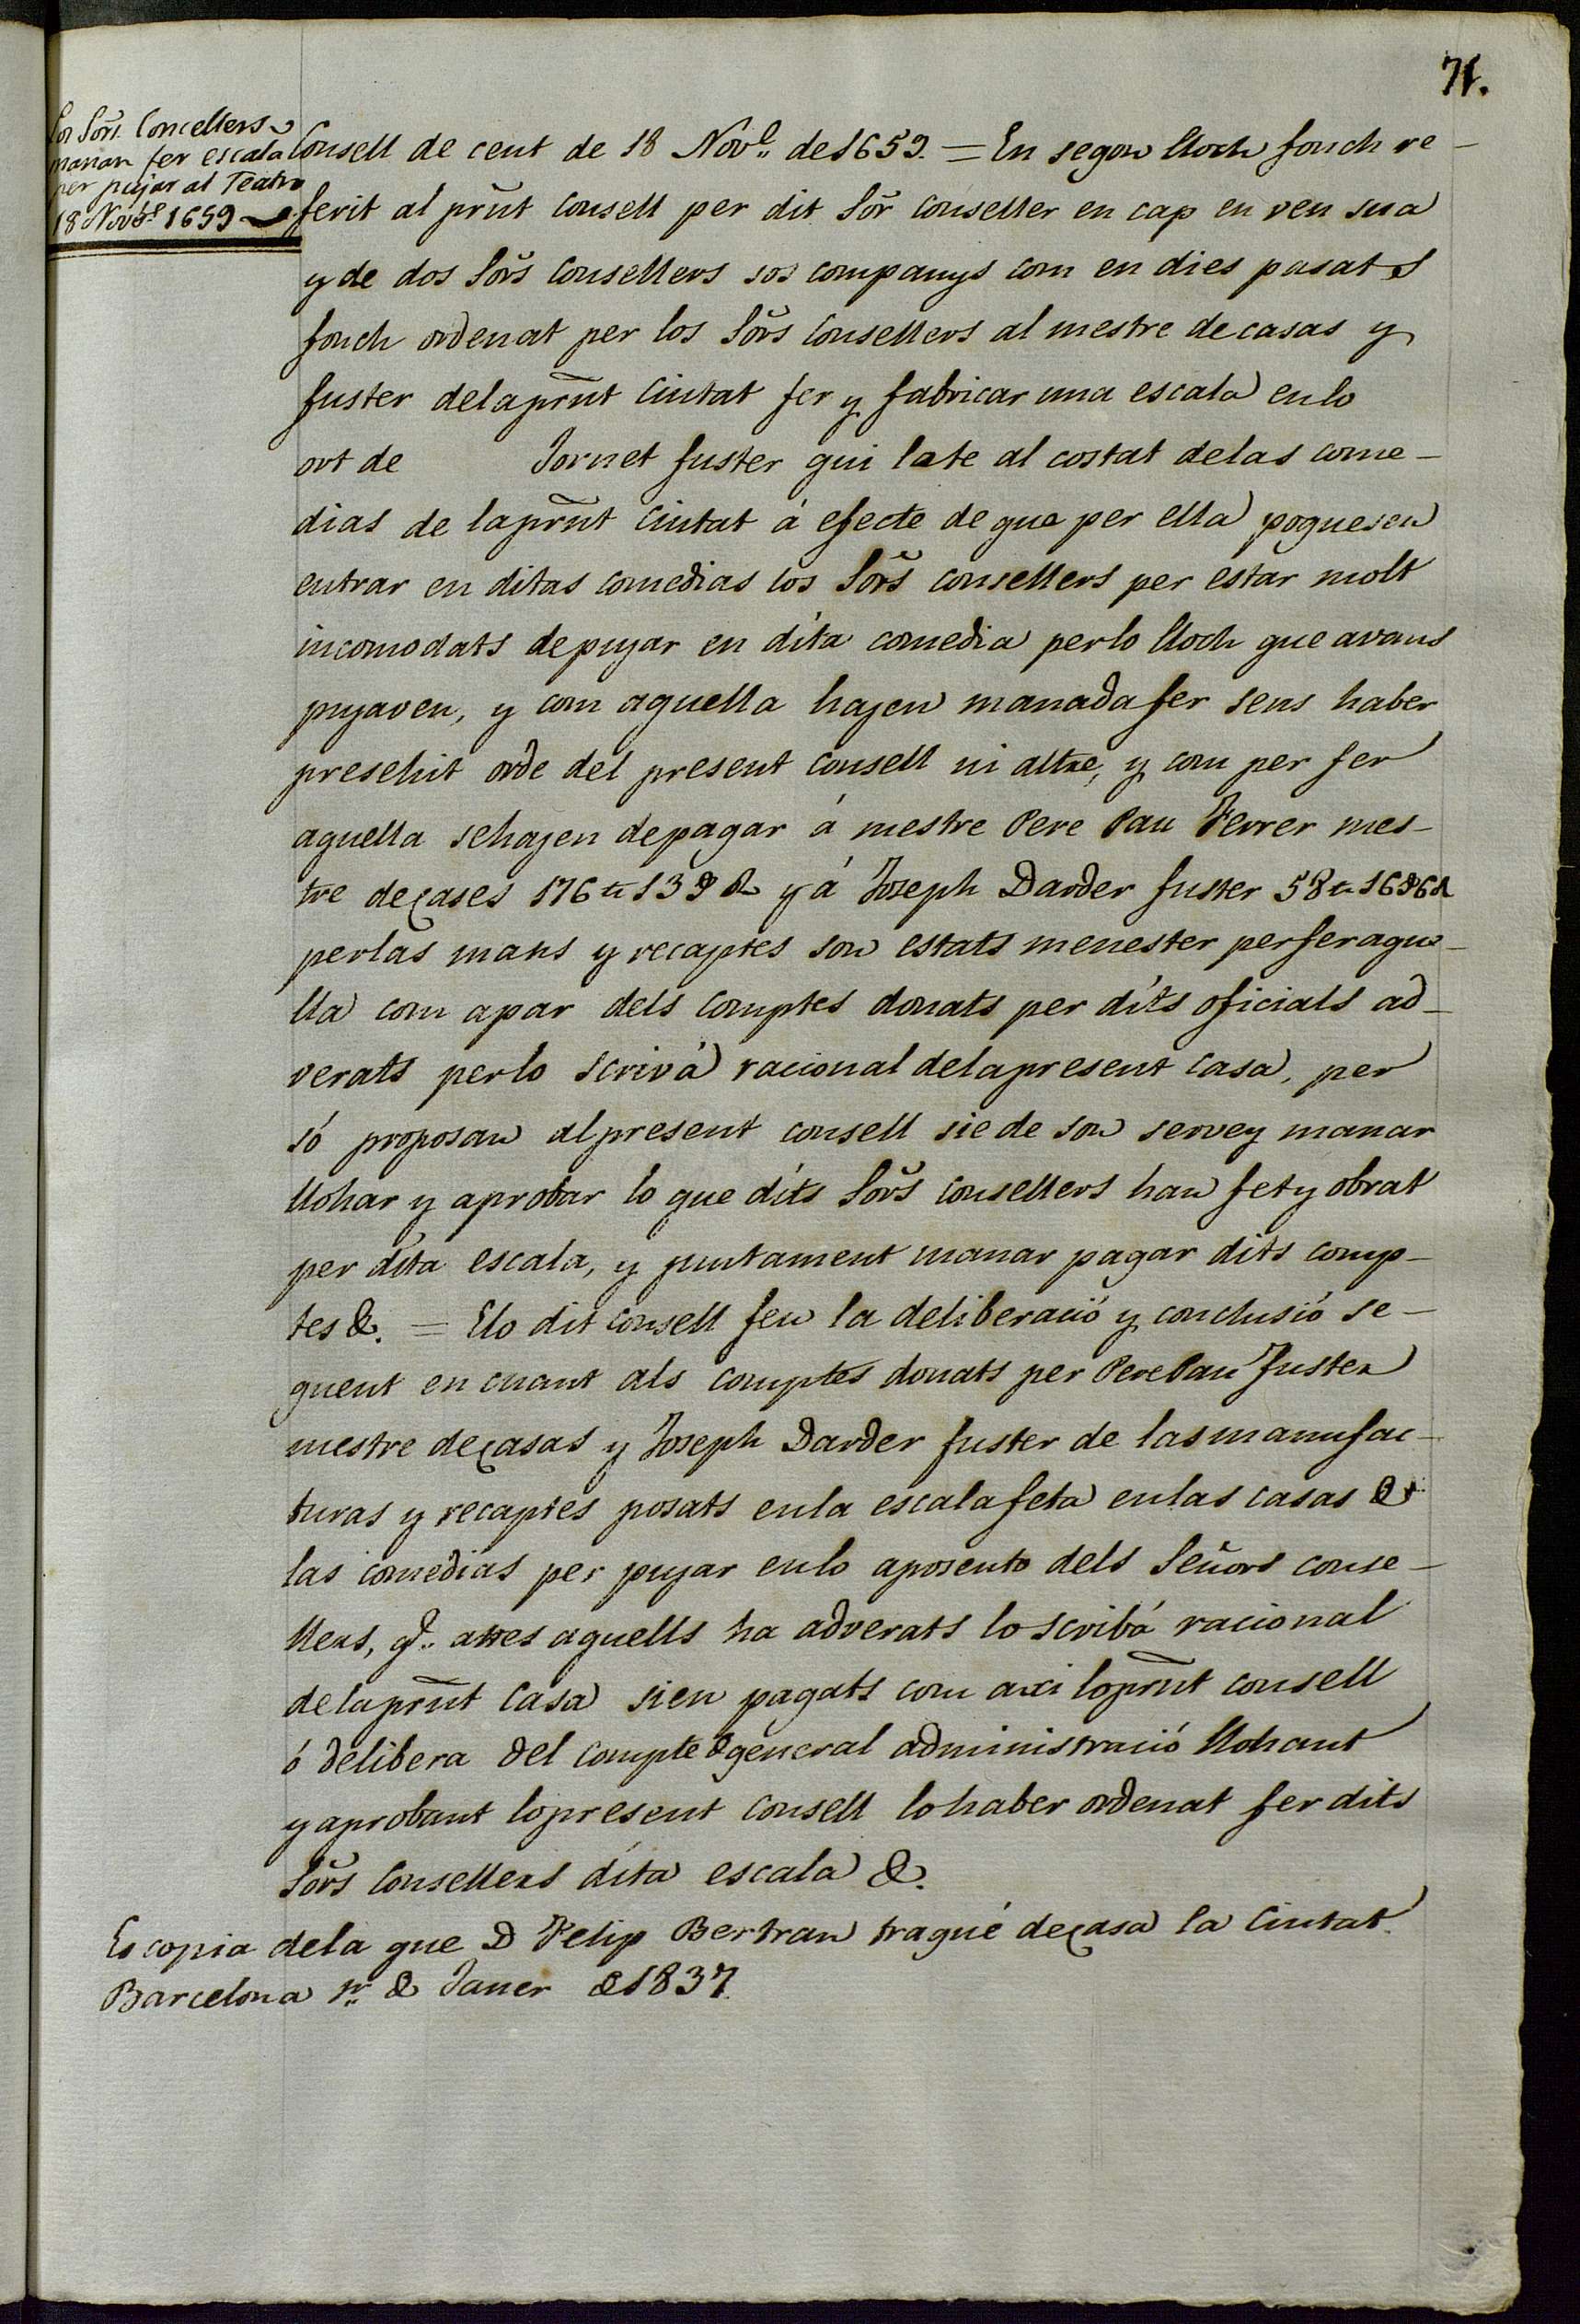 71.
Los Sõrs. Concellers
manan fer escala
per pujar al Teatro
18 Novbe 1659
Consell de cent de 18 Nove. de 1659. = En segon lloch fonch re-
ferit al prñt consell per dit Sõr conseller en cap en veu sua
y de dos Sõrs Consellers sos companys com en dies pasats
fonch ordenat per los Sõrs Consellers al mestre de casas y
fuster delaprñt Ciutat fer y fabricar una escala enlo
ort de Jornet fuster qui late al costat delas come-
dias de laprñt ciutat á efecte de que per ella poguesen
entrar en ditas comedias los Sõrs consellers per éstar molt
incomodats depujar en díta comedia perlo lloch que avans
pujaven, y com aquella hajen manada fer sens haber
presehit orde del present consell ni altre, y com per fer
aquella sehajen depagar á mestre Pere Pau Ferrer mes-
tre deçases 176 ₶ 13 9 & y á Joseph Darder fuster 58 ₶ 16 8 6 &
perlas mans y recaptes son estats menester perferaque-
lla com apar dels comptes donats per díts oficials ad-
verats perlo scrivá racional delapresent casa, per
só proposan alpresent consell sie de son servey manar
llohar y aprobar lo que díts Sõrs consellers han fet y obrat
per díta escala, y juntament manar pagar dits comp-
tes &. = Elo dit consell feu la deliberació y conclusió se-
guent en cuant als comptes donats per Pere Pau Fuster
mestre deçasas y Joseph Darder fuster de lasmanufac-
turas y recaptes posats enla escala feta enlas casas &
las comedias per pujar enlo aposento dels Señors conse-
llers, q.. attes aquells ha adverats lo scribá racional
delaprñt Casa sien pagats com axi loprñt consell
ó delibera del compte & general administració llohant
y aprobant lopresent consell lohaber ordenat fer dits
Sõrs Consellers díta escala &.
Es copia dela que D Felip Bertran tragué deçasa la Ciutat.
Barcelona pr. & Janer & 1837.